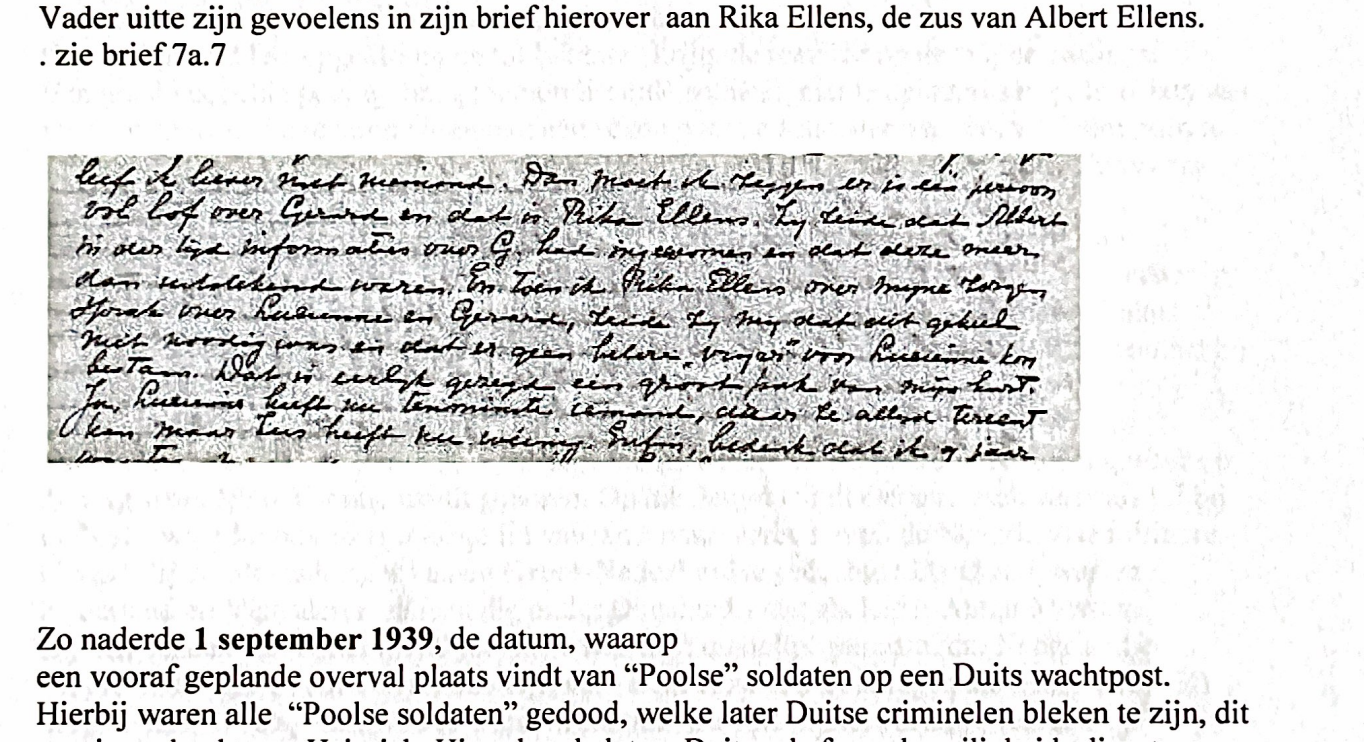 Vader uitte zijn gevoelens in zijn brief hierover aan Rika Ellens, de zus van Albert Ellens.
. zie brief 7a.7
heb ik liever niet niemand. Dan moet ik zeggen er is één persoon
vol lof over Gerard en dat is Rika Ellens. Zij zeide dat Albert
in der tijd informaties over G. had ingewonnen en dat deze meer
dan uitstekend waren. En toen ik Rika Ellens over mijne zorgen
sprak over Lucienne en Gerard, zeide zij mij dat dit geheel
niet noodig was en dat er geen betere voor Lucienne kon
bestaan. Dat is eerlijk gezegd een groot pak van mijn hart.
Ja, Lucienne heeft nu tenminste iemand, waar ze altijd terecht
kan maar Lus heeft nu weinig. Enfin, bedenk dat ik 9 jaar
Zo naderde 1 september 1939, de datum, waarop
een vooraf geplande overval plaats vindt van “Poolse” soldaten op een Duits wachtpost.
Hierbij waren alle “Poolse soldaten” gedood, welke later Duitse criminelen bleken te zijn, dit